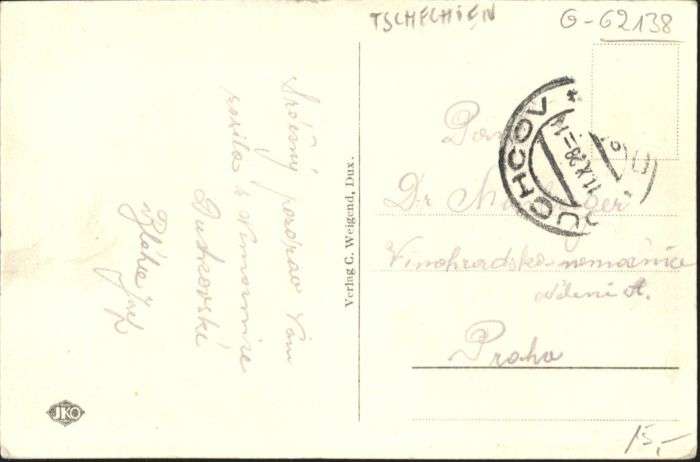 TSCHECHIEN
G-62138
Srdečný pozdrav Vám
z nemocnice
Duchcovské
Josef
Verlag C. Weigend, Dux.
DUCHCOV
11.X.28-11
DU
Pan
Dr
Vinohradska nemocnice
oddělení A.
Praha
JKO
15,-